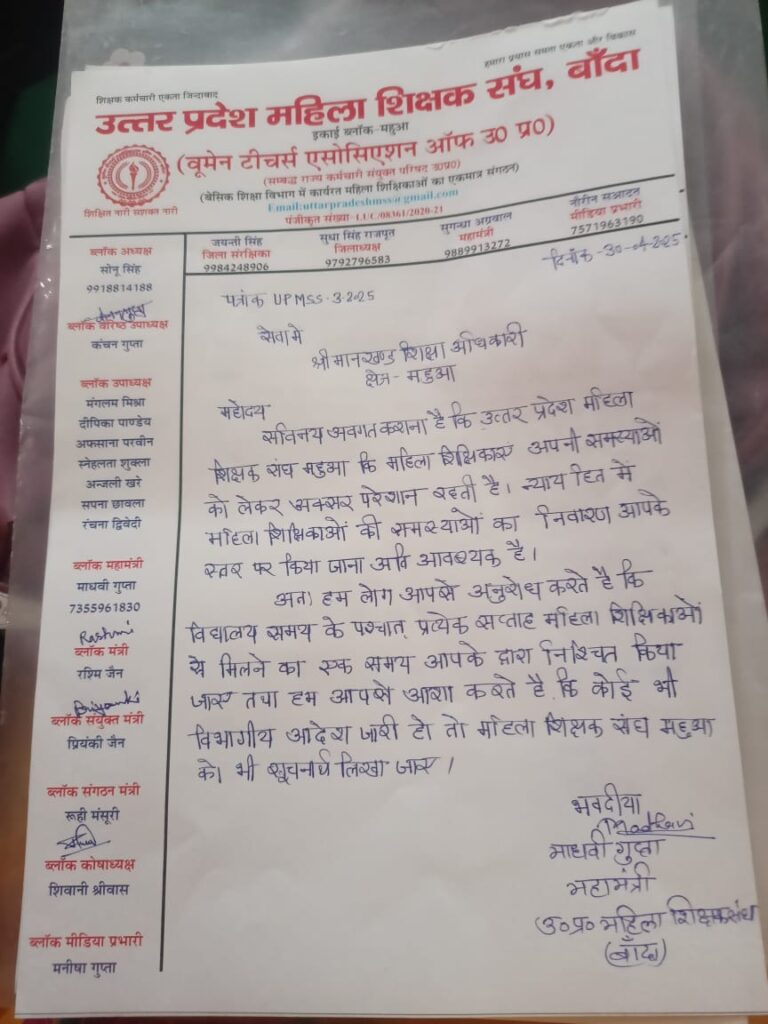 शिक्षक कर्मचारी एकता जिन्दाबाद
हमारा प्रयास समता एकता और विकास
उत्तर प्रदेश महिला शिक्षक संघ, बाँदा
इकाई ब्लॉक-महुआ
(वूमेन टीचर्स एसोसिएशन ऑफ उ0 प्र0)
(सम्बद्ध राज्य कर्मचारी संयुक्त परिषद उ0प्र0)
(बेसिक शिक्षा विभाग में कार्यरत महिला शिक्षिकाओं का एकमात्र संगठन)
Email:uttarpradeshmss@gmail.com
पंजीकृत संख्या-LUC/08361/2020-21
शिक्षित नारी सशक्त नारी
जयन्ती सिंह
जिला संरक्षिका
9984248906
सुधा सिंह राजपूत
जिलाध्यक्ष
9792796583
सुगन्धा अग्रवाल
महामंत्री
9889913272
नौरीन सआदत
मीडिया प्रभारी
7571963190
दिनाँक -30-04-2025.
पत्रांक UPMSS-3-2025
सेवा मे
श्रीमान खण्ड शिक्षा अधिकारी
क्षेत्र- महुआ
महोदय
सविनय अवगत कराना है कि उत्तर प्रदेश महिला
शिक्षक संघ महुआ कि महिला शिक्षिकाएं अपनी समस्याओं
को लेकर अक्सर परेशान रहती है। न्याय हित में
महिला शिक्षिकाओं की समस्याओं का निवारण आपके
स्तर पर किया जाना अति आवश्यक है।
अतः हम लोग आपसे अनुरोध करते है कि
विद्यालय समय के पश्चात् प्रत्येक सप्ताह महिला शिक्षिकाओं
से मिलने का एक समय आपके द्वारा निश्चित किया
जाए तथा हम आपसे आशा करते है कि कोई भी
विभागीय आदेश जारी हो तो महिला शिक्षक संघ महुआ
को भी सूचनार्थ लिखा जाए।
भवदीया
Madhavi
माधवी गुप्ता
महामंत्री
उ०प्र० महिला शिक्षक संघ
(बाँदा)
ब्लॉक अध्यक्ष
सोनू सिंह
9918814188
ब्लॉक वरिष्ठ उपाध्यक्ष
कंचन गुप्ता
ब्लॉक उपाध्यक्ष
मंगलम मिश्रा
दीपिका पाण्डेय
अफसाना परवीन
स्नेहलता शुक्ला
अन्जली खरे
सपना छावला
रंचना द्विवेदी
ब्लॉक महामंत्री
माधवी गुप्ता
7355961830
Rashmi
ब्लॉक मंत्री
रश्मि जैन
Priyanki
ब्लॉक संयुक्त मंत्री
प्रियंकी जैन
ब्लॉक संगठन मंत्री
रूही मंसूरी
ब्लॉक कोषाध्यक्ष
शिवानी श्रीवास
ब्लॉक मीडिया प्रभारी
मनीषा गुप्ता